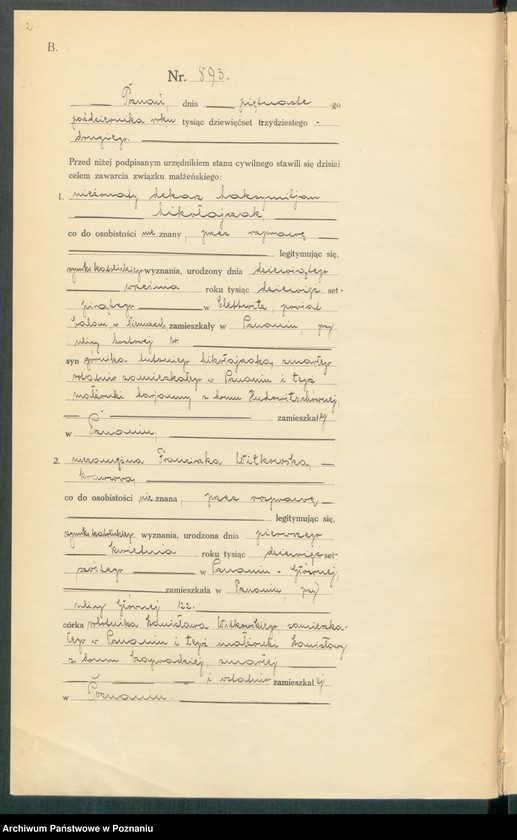 2
B.
Nr. 893.
Poznań, dnia piętnaste go
października roku tysiąc dziewięćset trzydziestego
drugiego.
Przed niżej podpisanym urzędnikiem stanu cywilnego stawili się dzisiaj
celem zawarcia związku małżeńskiego:
1. nieżonaty dekarz Maksymiljan
Mikołajczak,
co do osobistości nie znany, przez rozprawę
legitymując się,
rzymsko katolickiego wyznania, urodzony dnia dziewiątego
września roku tysiąc dziewięć set-
piątego w powiat
w Niemczech, zamieszkały w Poznaniu, przy
ulicy
syn górnika Mikołajczaka, zmarłego
ostatnio zamieszkałego w Poznaniu i tegoż
małżonki Marjanny z domu
zamieszkałej
w Poznaniu,
2. niezamężna Franciszka Witkowska,
krawcowa,
co do osobistości nie znana, przez rozprawę
legitymując się,
rzymsko katolickiego wyznania, urodzona dnia pierwszego
kwietnia roku tysiąc dziewięćset-
szóstego w Poznaniu - Głównej,
zamieszkała w Poznaniu, przy
ulicy Głównej 122.
córka robotnika Stanisława Witkowskiego, zamieszka-
łego w Poznaniu i tegoż małżonki Stanisławy
z domu zmarłej
i ostatnio zamieszkałej
w Poznaniu.
Archiwum Państwowe w Poznaniu